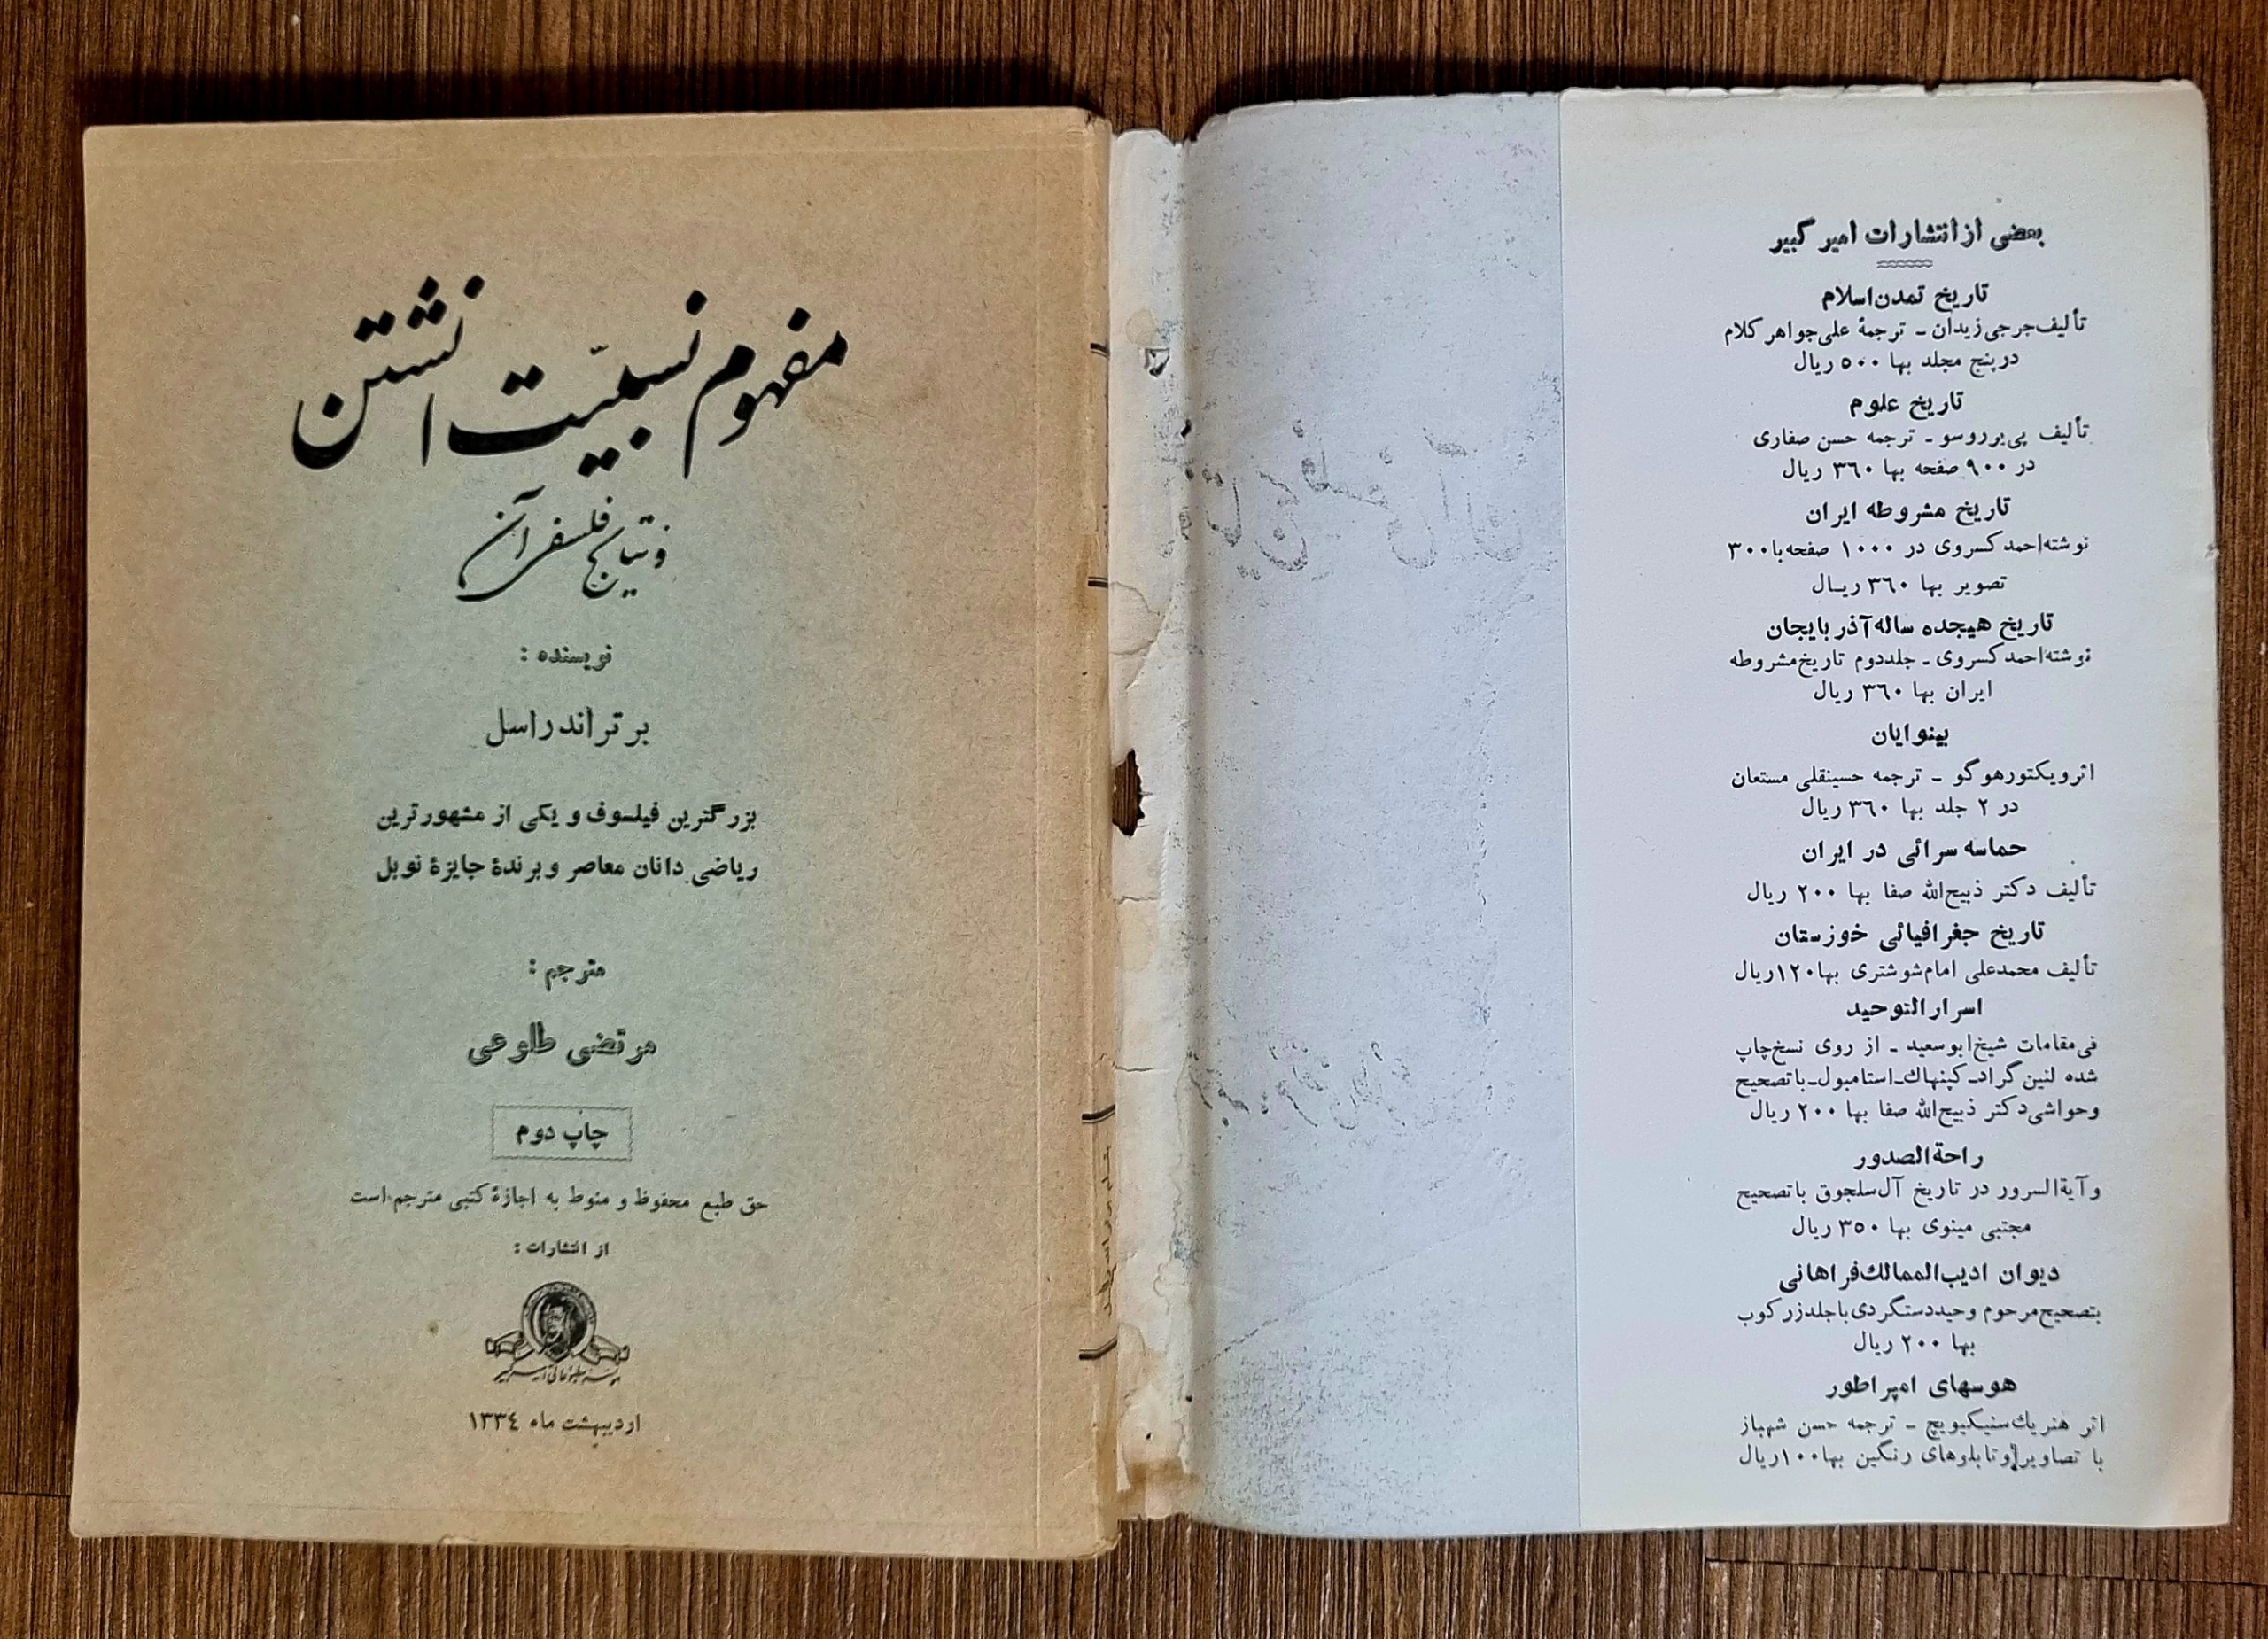 مفهوم نسبیّت انشتن
و نتایج فلسفی آن
نویسنده :
برتراندراسل
بزرگترین فیلسوف و یکی از مشهورترین
ریاضی دانان معاصر و برندهٔ جایزهٔ نوبل
مترجم :
مرتضی طلوعی
چاپ دوم
حق طبع محفوظ و منوط به اجازهٔ کتبی مترجم است
از انتشارات :
موسسه مطبوعاتی امیرکبیر
اردیبهشت ماه ۱۳۳٤
بعضی از انتشارات امیر کبیر
تاریخ تمدن اسلام
تألیف جرجی زیدان ـ ترجمهٔ علی جواهر کلام
در پنج مجلد بها ۵۰۰ ریال
تاریخ علوم
تألیف پی یر روسو ـ ترجمه حسن صفاری
در ۹۰۰ صفحه بها ۳٦۰ ریال
تاریخ مشروطه ایران
نوشته احمد کسروی در ۱۰۰۰ صفحه با ۳۰۰
تصویر بها ۳٦۰ ریال
تاریخ هیجده ساله آذربایجان
نوشته احمد کسروی ـ جلد دوم تاریخ مشروطه
ایران بها ۳٦۰ ریال
بینوایان
اثر ویکتور هوگو ـ ترجمه حسینقلی مستعان
در ۲ جلد بها ۳٦۰ ریال
حماسه سرائی در ایران
تألیف دکتر ذبیح‌الله صفا بها ۲۰۰ ریال
تاریخ جغرافیائی خوزستان
تألیف محمدعلی امام شوشتری بها ۱۲۰ ریال
اسرارالتوحید
فی مقامات شیخ ابوسعید ـ از روی نسخ چاپ
شده لنین گراد ـ کپنهاك ـ استامبول ـ با تصحیح
و حواشی دکتر ذبیح‌الله صفا بها ۲۰۰ ریال
راحةالصدور
و آیةالسرور در تاریخ آل سلجوق با تصحیح
مجتبی مینوی بها ۳۵۰ ریال
دیوان ادیب‌الممالك فراهانی
بتصحیح مرحوم وحید دستگردی با جلد زرکوب
بها ۲۰۰ ریال
هوسهای امپراطور
اثر هنریك سنیکیویچ ـ ترجمه حسن شهباز
با تصاویر و تابلوهای رنگین بها ۱۰۰ ریال